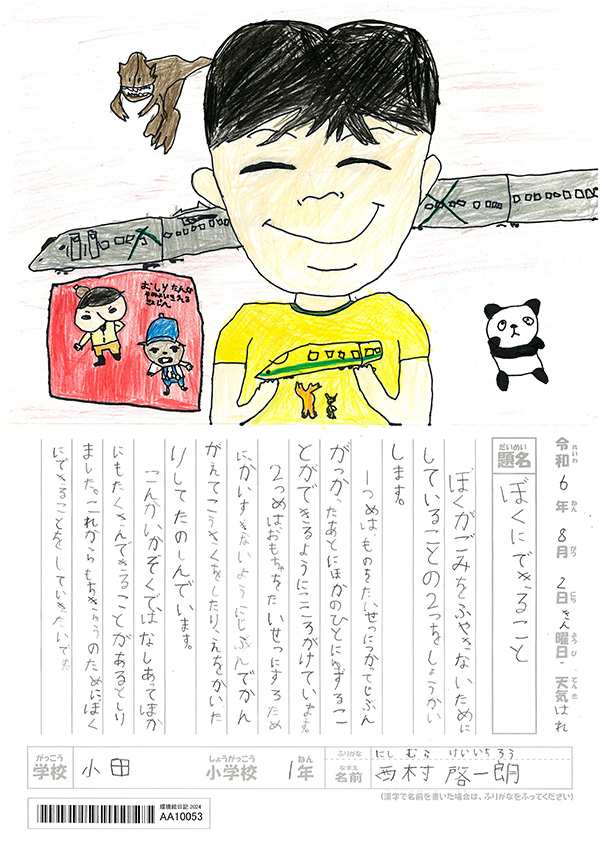 おしりたんてい
かいけつ
れいわ
令和6年8月2日きん曜日・天気はれ
ねん がつ にち ようび てんき
だいめい
題名
ぼくにできること
ぼくがごみをふやさないために
していることの2つをしょうかい
します。
一つめは、ものをたいせつにつかってじぶん
がつかったあとにほかのひとにゆずるこ
とができるようにこころがけています。
2つめは、おもちゃをたいせつにするため
にかいすぎないようにじぶんでかん
がえてこうさくをしたり、えをかいた
りしてたのしんでいます。
こんかいかぞくではなしあってほか
にもたくさんできることがあるとしり
ました。これからもちきゅうのためにぼく
にできることをしていきたいです。
がっこう
学校
小田
しょうがっこう
小学校
ねん
1年
ふりがな
にしむら けいいちろう
なまえ
名前
西村 啓一朗
(漢字で名前を書いた場合は、ふりがなをふってください)
環境絵日記 2024
AA10053